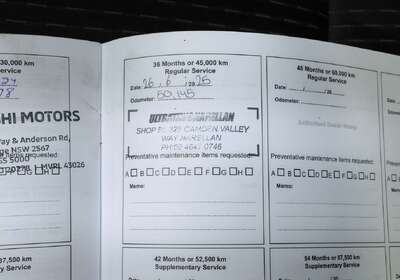 30,000 km
Service
78
HI MOTORS
ay & Anderson Rd,
ge NSW 2567
items requested:
37,500 km
Service
36 Months or 45,000 km
Regular Service
Date: 26 / 6 / 20 25
Odometer: 50,145
SHOP 5/ 323 CAMDEN VALLEY
WAY NARELLAN
PH:02 4647 0746
Preventative maintenance items requested:
A B C D E F G H
Memo:
42 Months or 52,500 km
Supplementary Service
48 Months or 60,000 km
Regular Service
Date: / / 20
Odometer:
Preventative maintenance items requested:
A B C D E F G H
Memo:
54 Months or 67,500 km
Supplementary Service